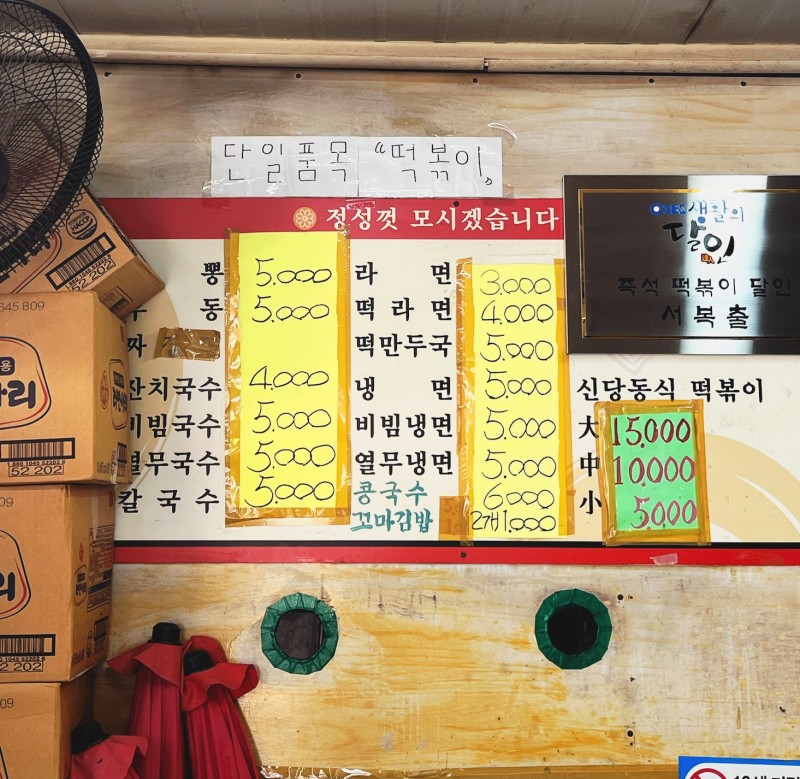 단일품목 "떡볶이"
정성껏 모시겠습니다
SBS 생활의
달인
즉석 떡볶이 달인
서복출
뽕 5.000
동 5.000
짜
잔치국수 4.000
비빔국수 5.000
열무국수 5.000
칼국수 5.000
라면 3.000
떡라면 4.000
떡만두국 5.000
냉면 5.000
비빔냉면 5.000
열무냉면 5.000
콩국수 6.000
꼬마김밥 2개 1.000
신당동식 떡볶이
大 15.000
中 10.000
小 5.000
645 809
52 202
52 202